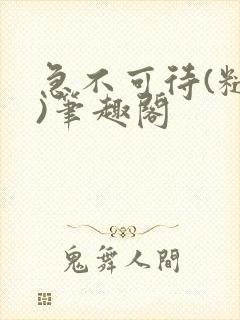 急不可待(
)筆趣閣
鬼舞人間